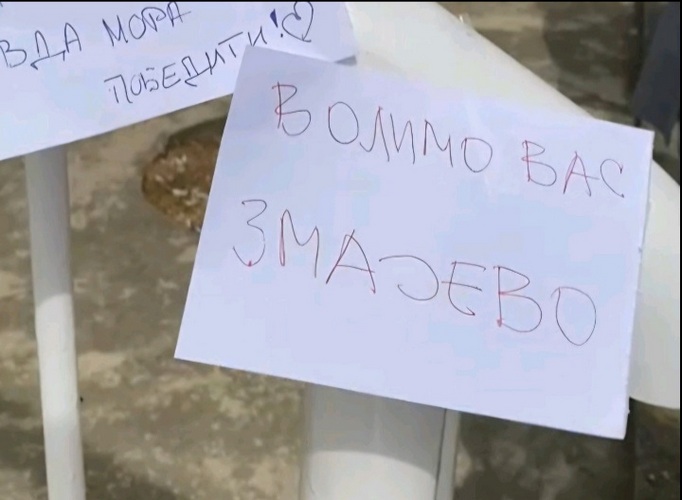 ВДА МОРА
ПОБЕДИТИ!
ВОЛИМО ВАС
ЗМАЈЕВО